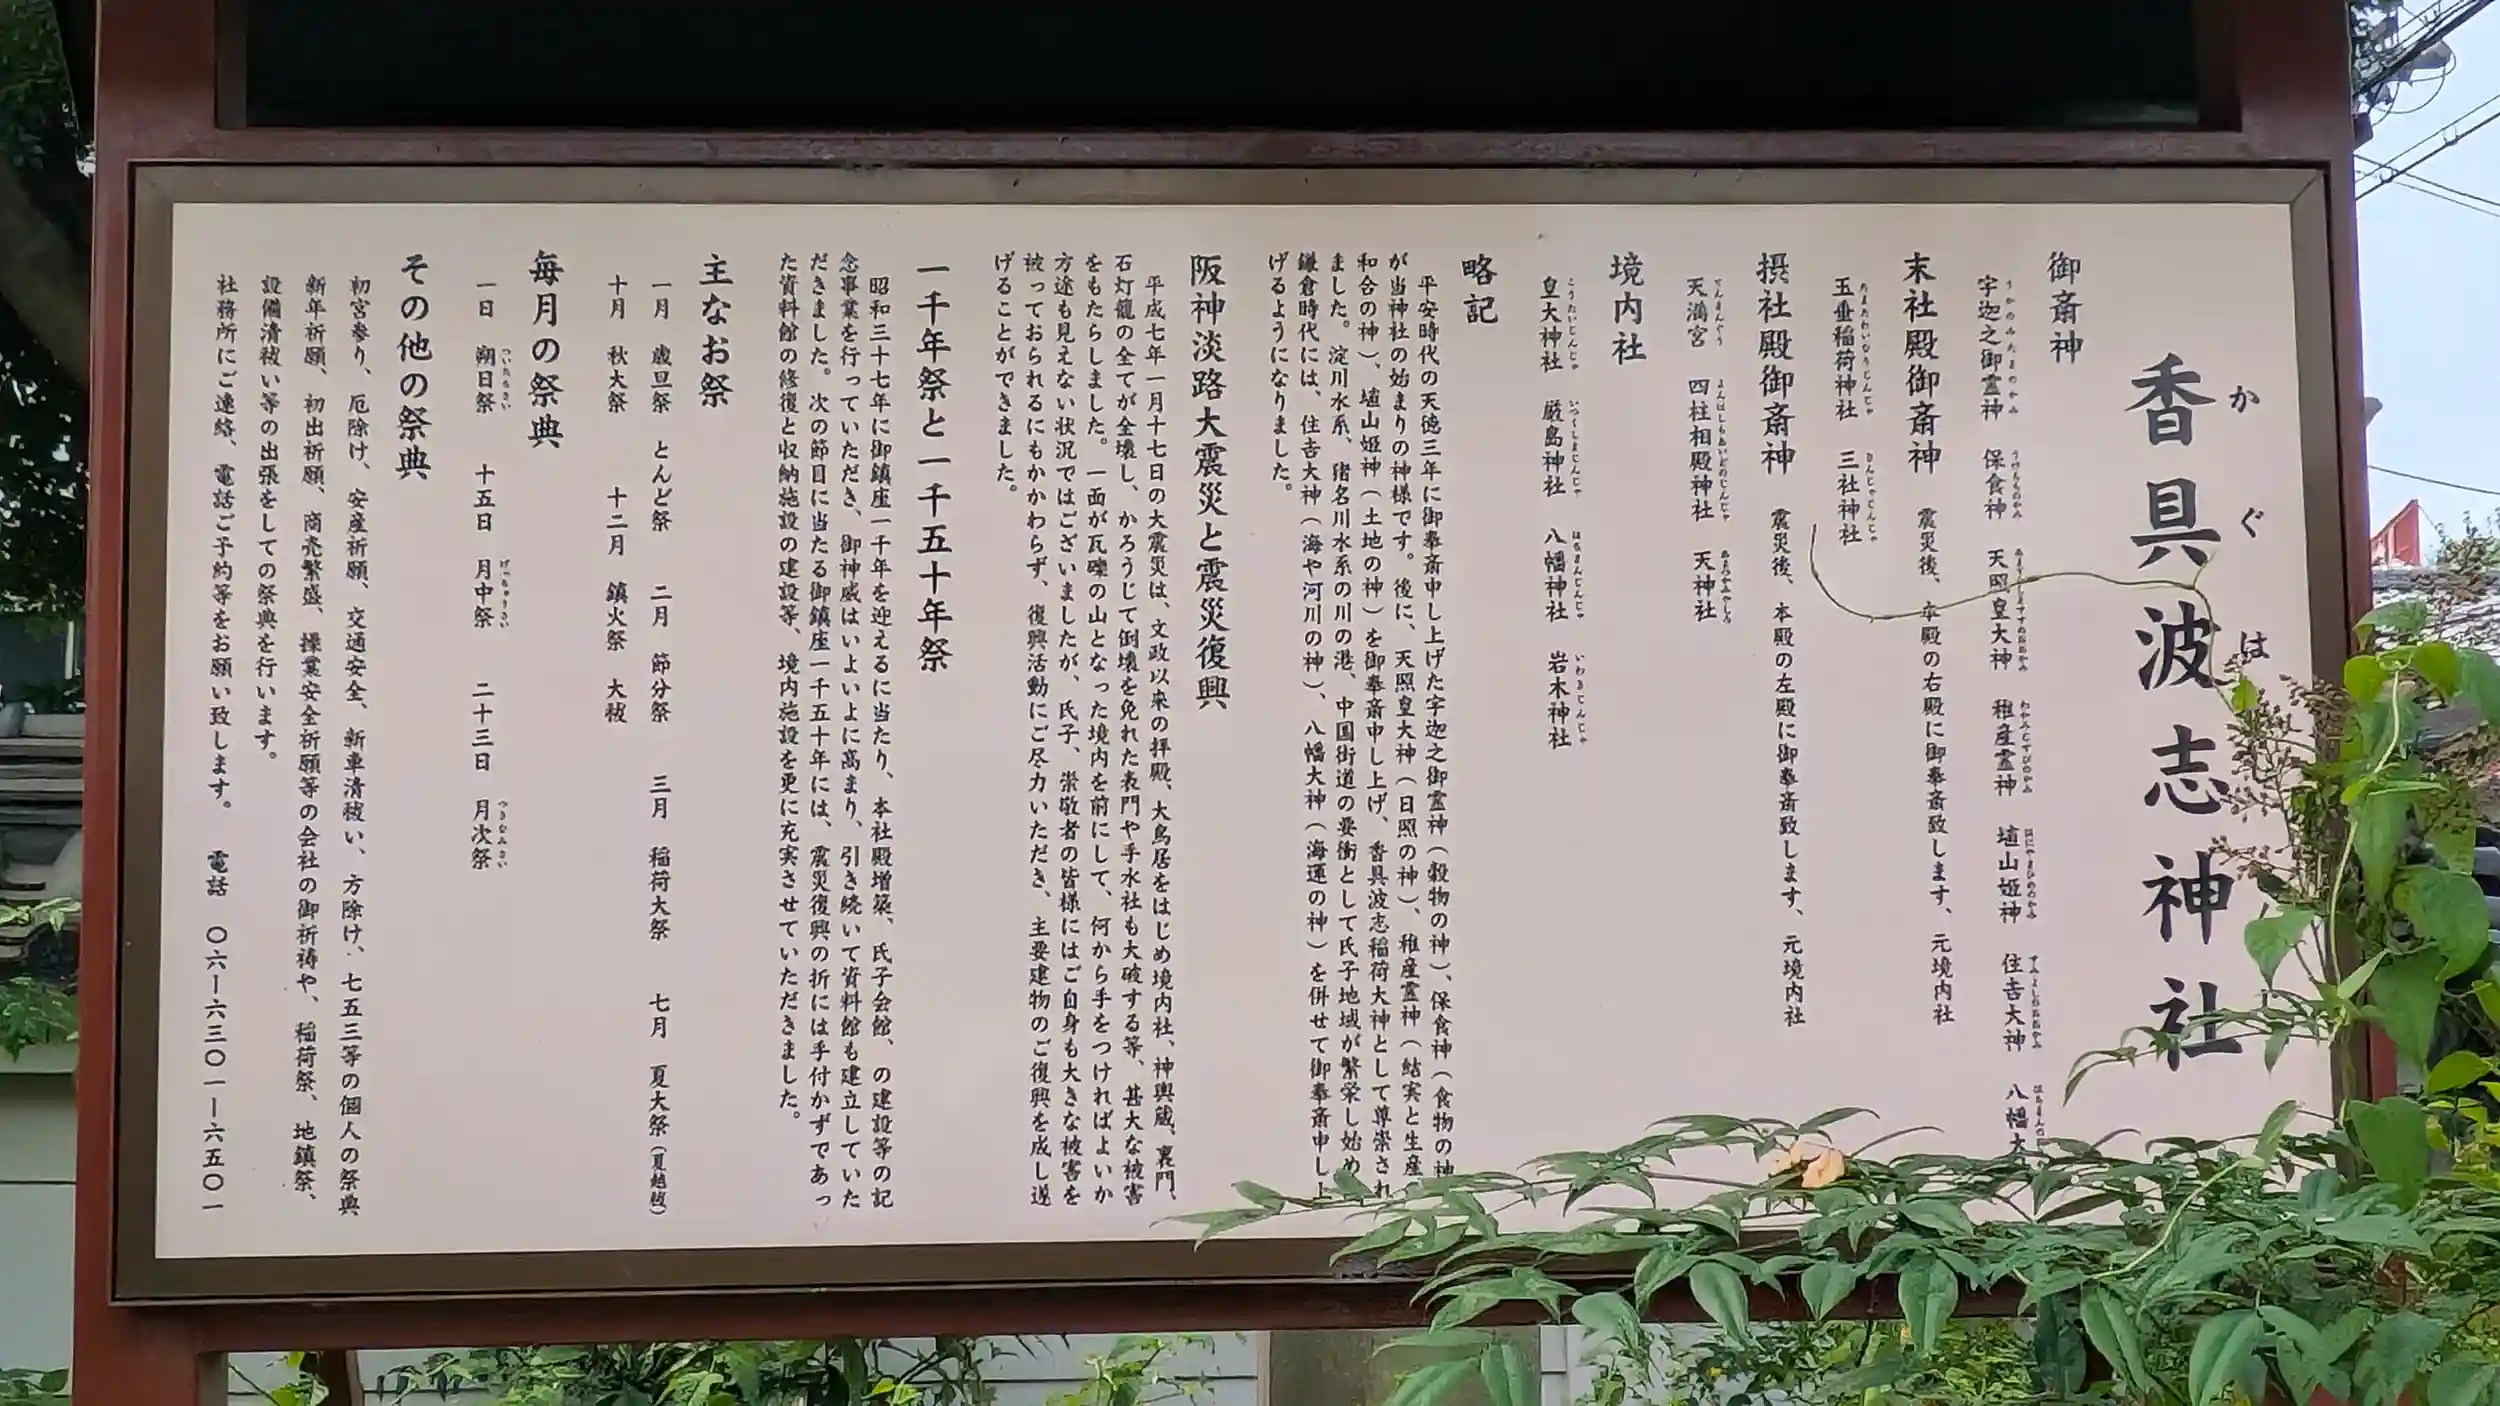 香具波志神社
かぐは
御斎神
宇迦之御霊神 保食神 天照皇大神 稚産霊神 埴山姫神 住吉大神 八幡大
末社殿御斎神 震災後、本殿の右殿に御奉斎致します、元境内社
玉垂稲荷神社 三社神社
摂社殿御斎神 震災後、本殿の左殿に御奉斎致します、元境内社
天満宮 四柱相殿神社 天神社
境内社
皇大神社 厳島神社 八幡神社 岩木神社
略記
平安時代の天徳三年に御奉斎申し上げた宇迦之御霊神(穀物の神)、保食神(食物の神
が当神社の始まりの神様です。後に、天照皇大神(日照の神)、稚産霊神(結実と生産
和合の神)、埴山姫神(土地の神)を御奉斎申し上げ、香具波志稲荷大神として尊崇され
ました。淀川水系、猪名川水系の川の港、中国街道の要衝として氏子地域が繁栄し始め
鎌倉時代には、住吉大神(海や河川の神)、八幡大神(海運の神)を併せて御奉斎申し上
げるようになりました。
阪神淡路大震災と震災復興
平成七年一月十七日の大震災は、文政以来の拝殿、大鳥居をはじめ境内社、神輿蔵、裏門、
石灯籠の全てが全壊し、かろうじて倒壊を免れた表門や手水社も大破する等、甚大な被害
をもたらしました。一面が瓦礫の山となった境内を前にして、何から手をつければよいか
方途も見えない状況ではございましたが、氏子、崇敬者の皆様にはご自身も大きな被害を
被っておられるにもかかわらず、復興活動にご尽力いただき、主要建物のご復興を成し遂
げることができました。
一千年祭と一千五十年祭
昭和三十七年に御鎮座一千年を迎えるに当たり、本社殿増築、氏子会館、の建設等の記
念事業を行っていただき、御神威はいよいよに高まり、引き続いて資料館も建立していた
だきました。次の節目に当たる御鎮座一千五十年には、震災復興の折には手付かずであっ
た資料館の修復と収納施設の建設等、境内施設を更に充実させていただきました。
主なお祭
一月 歳旦祭 とんど祭 二月 節分祭 三月 稲荷大祭 七月 夏大祭(夏越祓)
十月 秋大祭 十二月 鎮火祭 大祓
毎月の祭典
一日 朔日祭 十五日 月中祭 二十三日 月次祭
その他の祭典
初宮参り、厄除け、安産祈願、交通安全、新車清祓い、方除け、七五三等の個人の祭典
新年祈願、初出祈願、商売繁盛、操業安全祈願等の会社の御祈祷や、稲荷祭、地鎮祭、
設備清祓い等の出張をしての祭典を行います。
社務所にご連絡、電話ご予約等をお願い致します。 電話 〇六ー六三〇一ー六五〇一